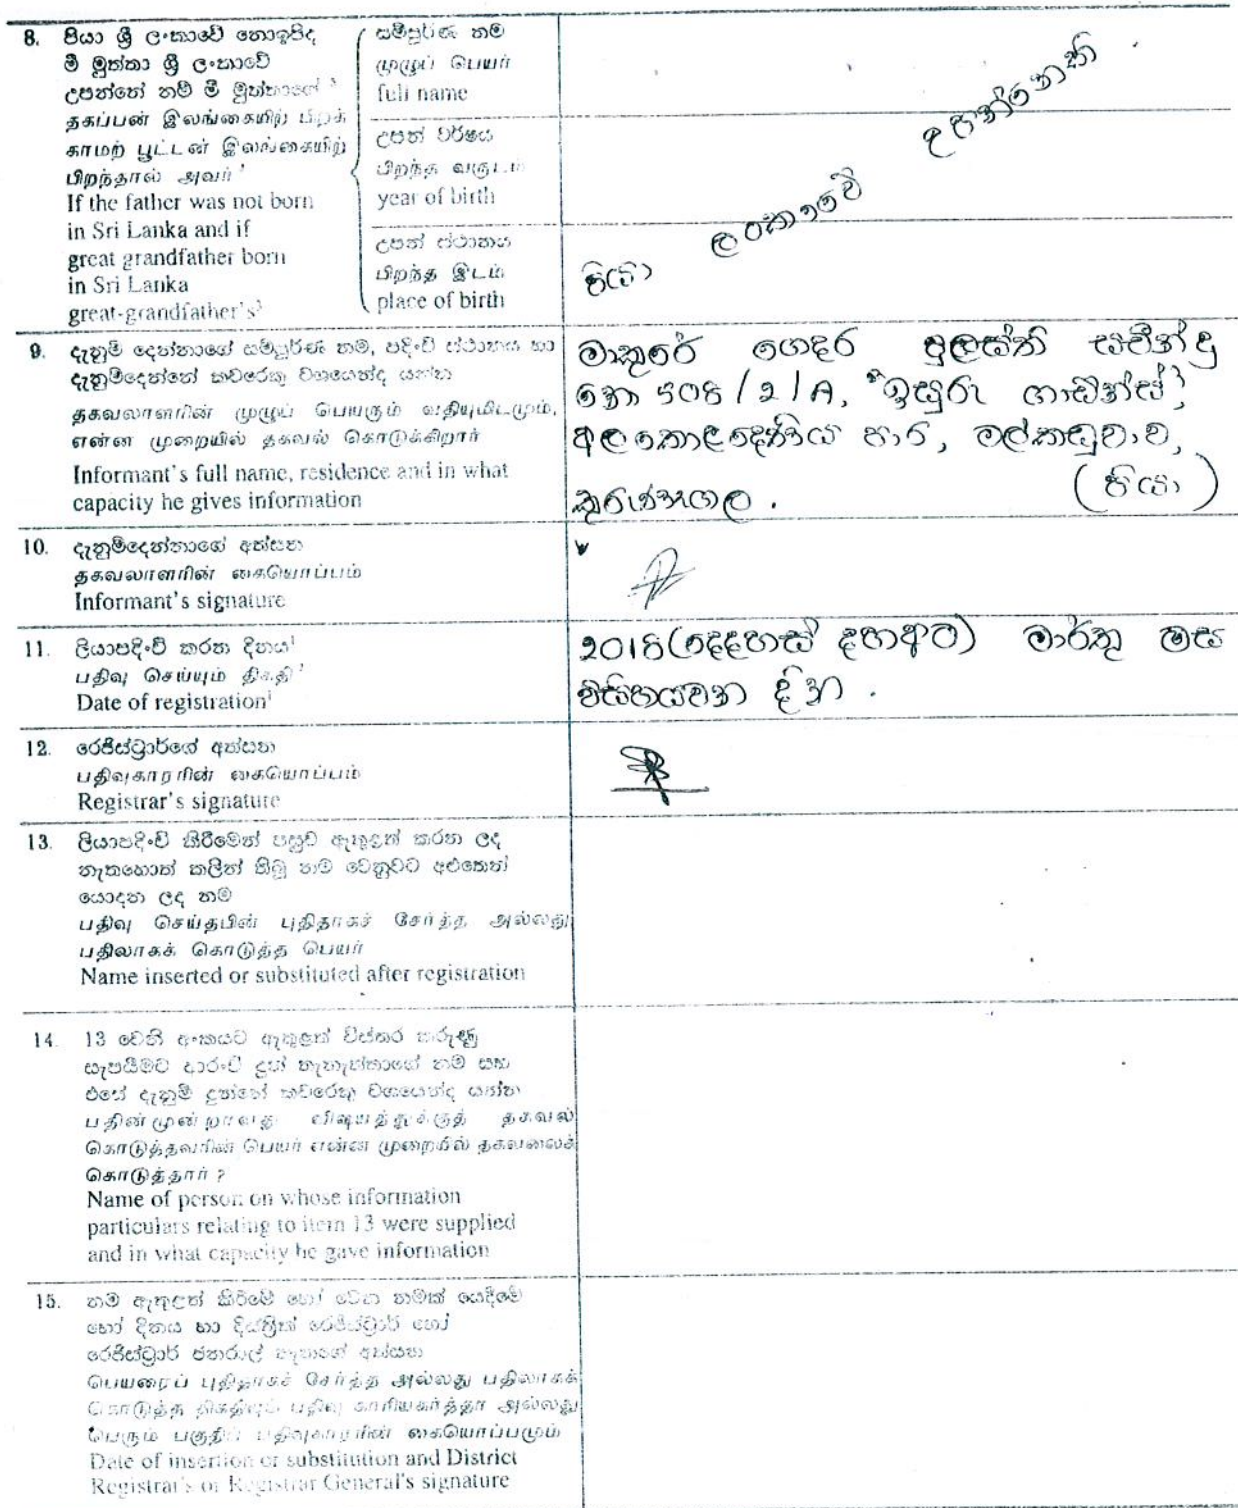 8. පියා ශ්‍රී ලංකාවේ නොඉපිද
මී මුත්තා ශ්‍රී ලංකාවේ
උපන්නේ නම් මී මුත්තාගේ
தகப்பன் இலங்கையிற் பிறக்
காமற் பூட்டன் இலங்கையிற்
பிறந்தால் அவர்
If the father was not born
in Sri Lanka and if
great grandfather born
in Sri Lanka
great-grandfather's³
සම්පූර්ණ නම
முழுப் பெயர்
full name
උපන් වර්ෂය
பிறந்த வருடம்
year of birth
උපන් ස්ථානය
பிறந்த இடம்
place of birth
පියා ලංකාවේ උපන්නෙකි
9. දැනුම් දෙන්නාගේ සම්පූර්ණ නම, පදිංචි ස්ථානය හා
දැනුම්දෙන්නේ කවරෙකු වශයෙන්ද යන්න
தகவலாளரின் முழுப் பெயரும் வதியுமிடமும்,
என்ன முறையில் தகவல் கொடுக்கிறார்
Informant's full name, residence and in what
capacity he gives information
මාකුරේ ගෙදර පුලස්ති සචින්දු
නො 508/2/A, "ඉසුරු ගාඩ්න්ස්",
අලකොළදෙණිය පාර, මල්කඩුවාව,
කුරුණෑගල. (පියා)
10. දැනුම්දෙන්නාගේ අත්සන
தகவலாளரின் கையொப்பம்
Informant's signature
11. ලියාපදිංචි කරන දිනය¹
பதிவு செய்யும் திகதி
Date of registration¹
2018(දෙදහස් දහඅට) මාර්තු මස
විසිහයවන දින.
12. රෙජිස්ට්‍රාර්ගේ අත්සන
பதிவுகாரரின் கையொப்பம்
Registrar's signature
13. ලියාපදිංචි කිරීමෙන් පසුව ඇතුළත් කරන ලද
නැතහොත් කලින් තිබූ නම වෙනුවට අළුතෙන්
යොදන ලද නම
பதிவு செய்தபின் புதிதாகச் சேர்த்த அல்லது
பதிலாகக் கொடுத்த பெயர்
Name inserted or substituted after registration
14. 13 වෙනි අංකයට ඇතුළත් විස්තර කරුණු
සැපයීමට ආරංචි දුන් තැනැත්තාගේ නම සහ
එසේ දැනුම් දුන්නේ කවරෙකු වශයෙන්ද යන්න
பதின்மூன்றாவது விஷயத்துக்குத் தகவல்
கொடுத்தவரின் பெயர் என்ன முறையில் தகவலைக்
கொடுத்தார் ?
Name of person on whose information
particulars relating to item 13 were supplied
and in what capacity he gave information
15. නම ඇතුළත් කිරීමේ හෝ වෙන නමක් යෙදීමේ
හෝ දිනය හා දිස්ත්‍රික් රෙජිස්ට්‍රාර් හෝ
රෙජිස්ට්‍රාර් ජනරාල් තැනගේ අත්සන
பெயரைப் புதிதாகச் சேர்த்த அல்லது பதிலாகக்
கொடுத்த திகதியும் பதிவு காரியகர்த்தா அல்லது
பெரும் பகுதிப் பதிவுகாரரின் கையொப்பமும்
Date of insertion or substitution and District
Registrar's or Registrar General's signature